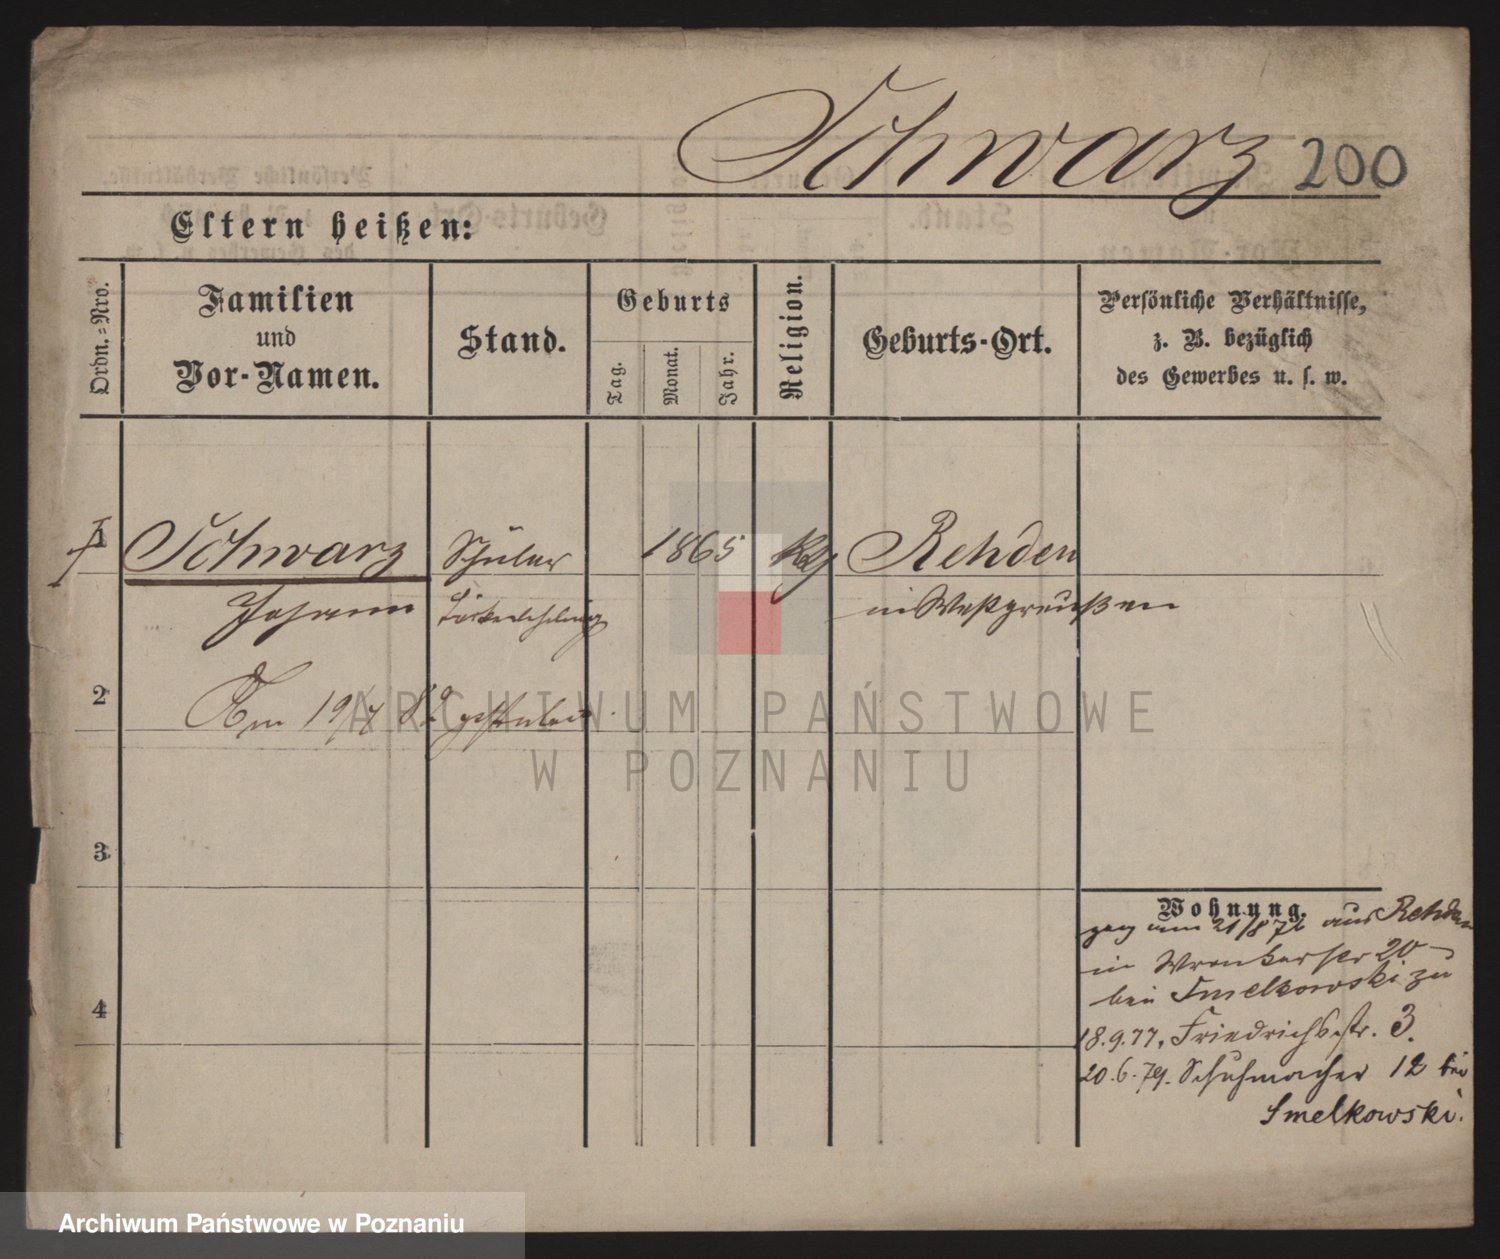 Schwarz 200
Eltern heißen:
Ordn.=Nro.
Familien
und
Vor-Namen.
Stand.
Geburts
Tag.
Monat.
Jahr.
Religion.
Geburts-Ort.
Persönliche Verhältnisse,
z. B. bezüglich
des Gewerbes u. s. w.
1 Schwarz Schüler 1865 Rehden
Johann in Westpreußen
2
Am 19/4 82 gestorben.
ARCHIWUM PAŃSTWOWE
W POZNANIU
3
4
Wohnung.
aus Rehden
in Wronkerstr 20
bei Smelkowski zu
18.9.77, Friedrichsstr. 3.
20.6.79. Schuhmacher 12 bei
Smelkowski.
Archiwum Państwowe w Poznaniu